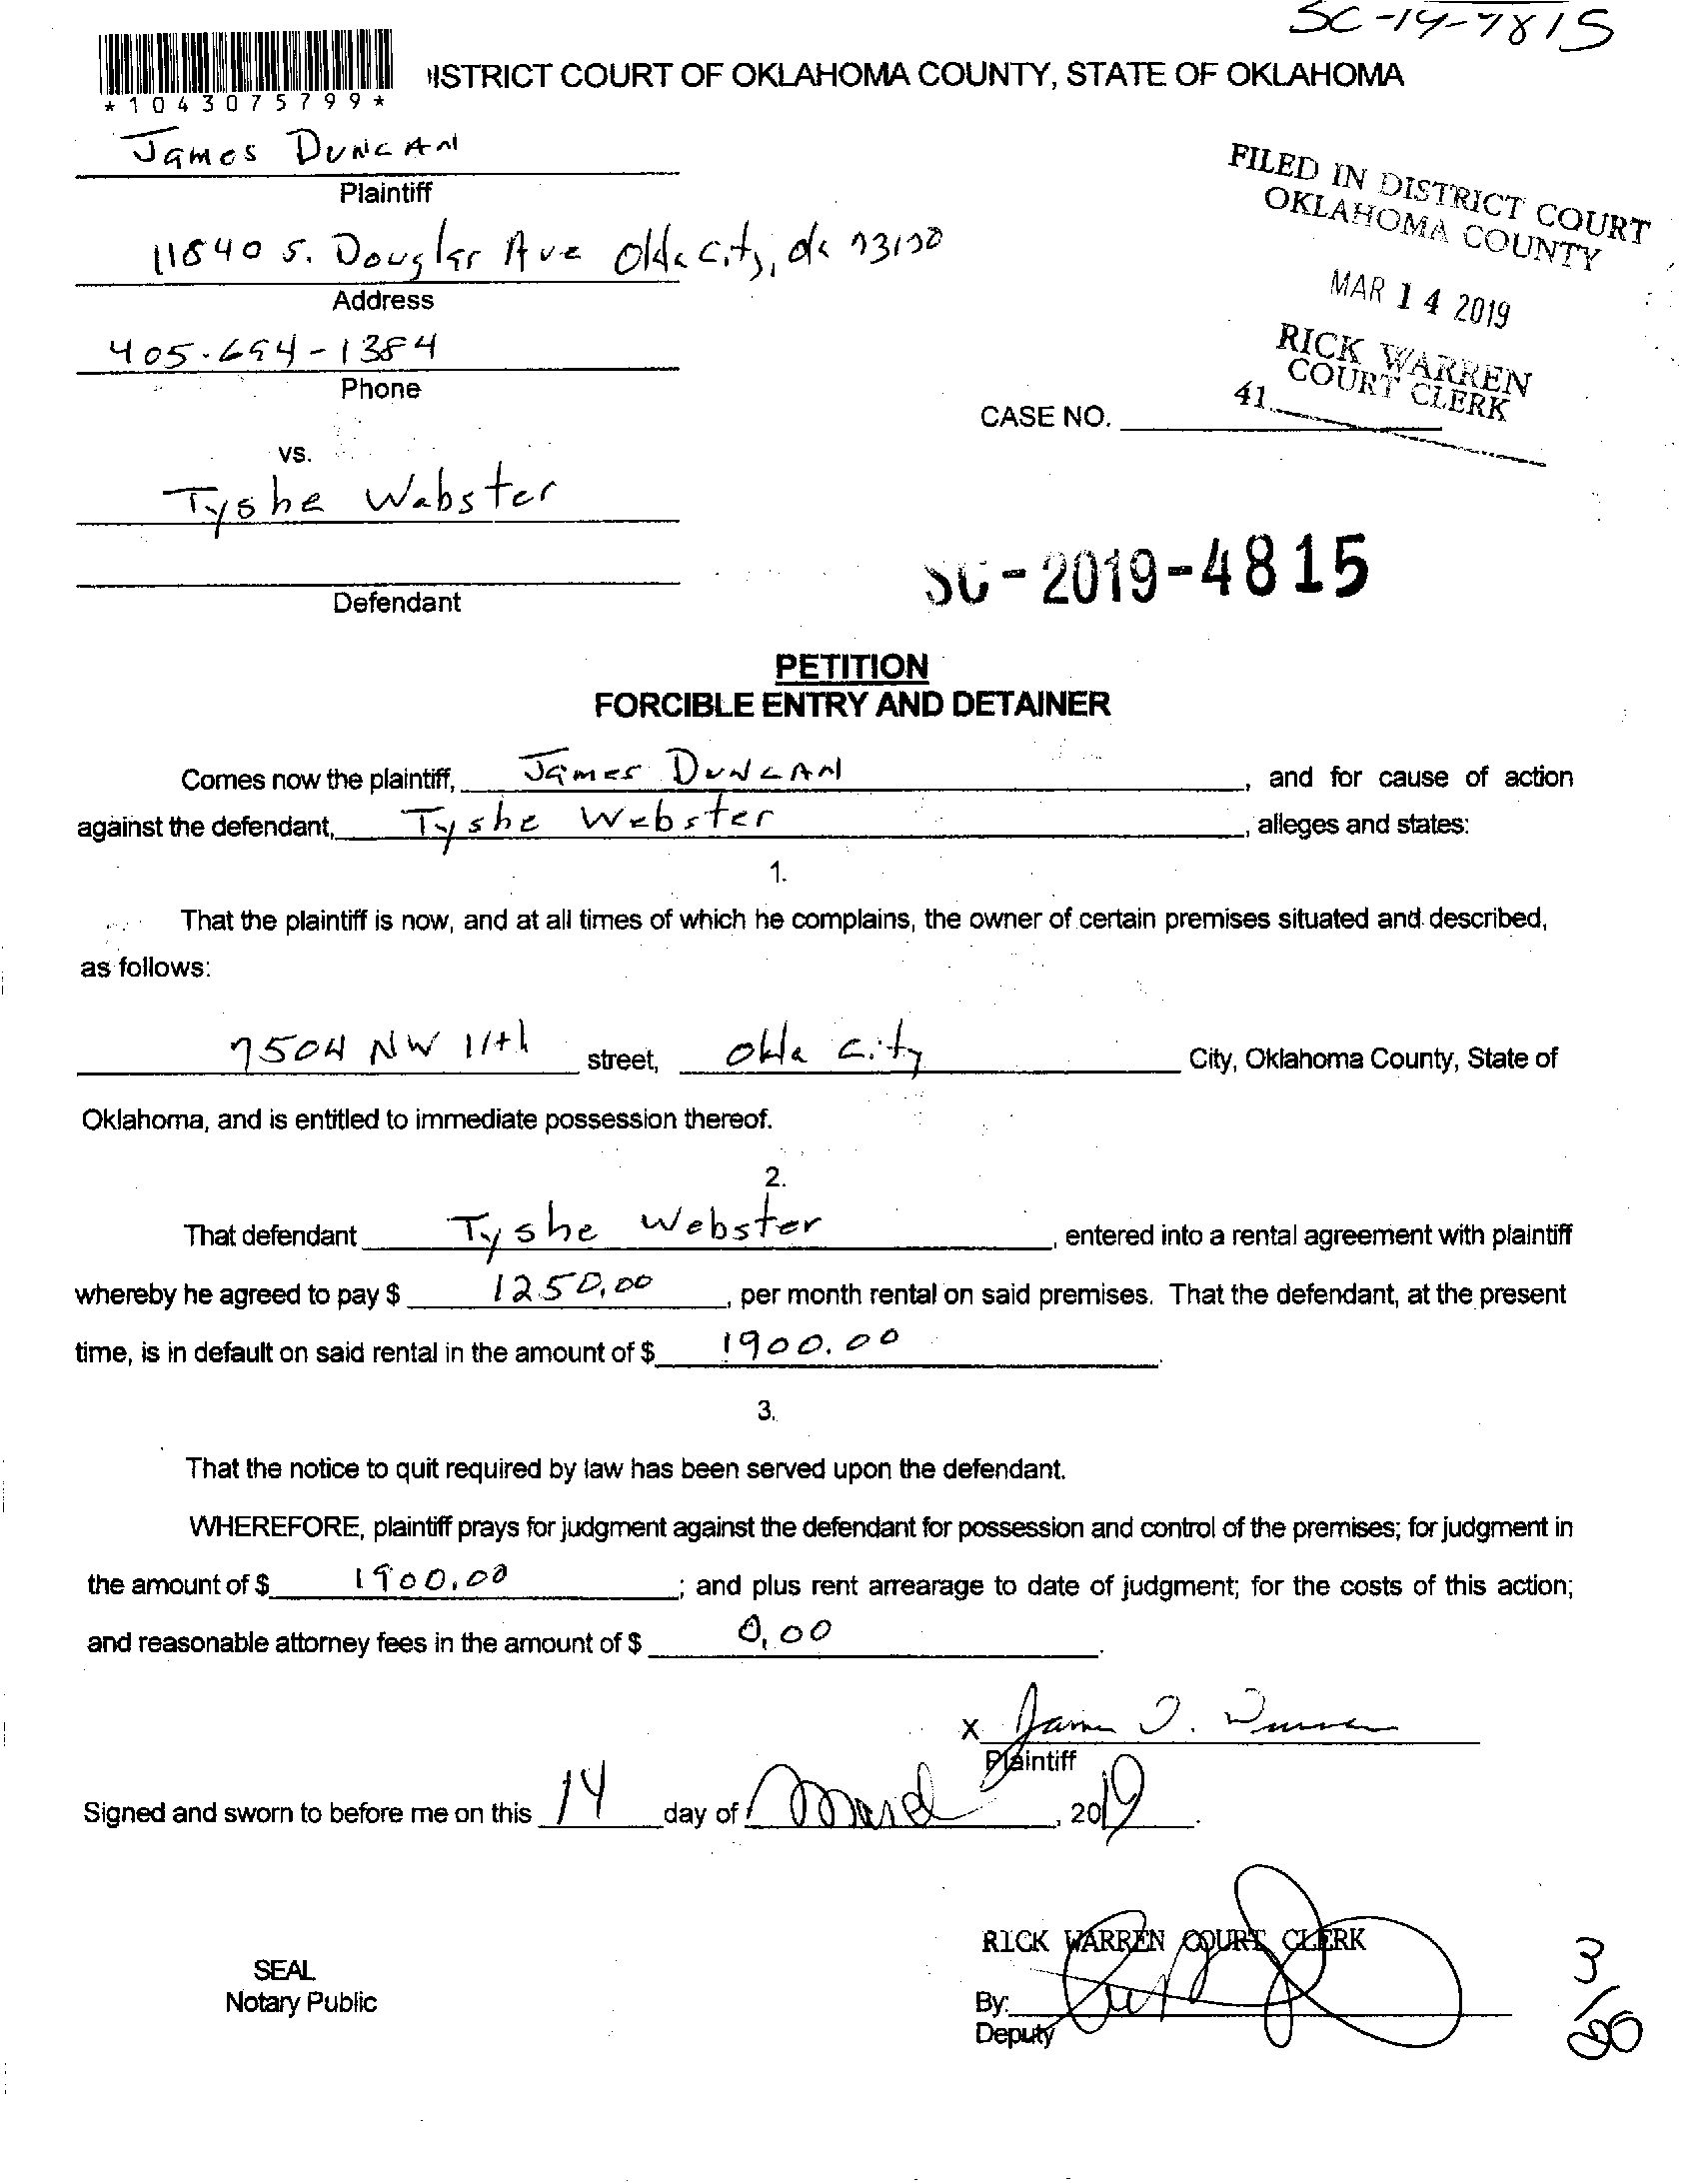 SC-19-4815
*1043075799*
ISTRICT COURT OF OKLAHOMA COUNTY, STATE OF OKLAHOMA
James Duncan
Plaintiff
FILED IN DISTRICT COURT
OKLAHOMA COUNTY
11840 S. Douglas Ave Okla City, ok 73150
Address
MAR 14 2019
405-694-1384
Phone
RICK WARREN
COURT CLERK
41
CASE NO.
vs.
Tyshe Webster
SC-2019-4815
Defendant
PETITION
FORCIBLE ENTRY AND DETAINER
Comes now the plaintiff, James Duncan, and for cause of action
against the defendant, Tyshe Webster, alleges and states:
1.
That the plaintiff is now, and at all times of which he complains, the owner of certain premises situated and described,
as follows:
7504 NW 11th street, Okla City City, Oklahoma County, State of
Oklahoma, and is entitled to immediate possession thereof.
2.
That defendant Tyshe Webster, entered into a rental agreement with plaintiff
whereby he agreed to pay $ 1250.00, per month rental on said premises. That the defendant, at the present
time, is in default on said rental in the amount of $ 1900.00.
3.
That the notice to quit required by law has been served upon the defendant.
WHEREFORE, plaintiff prays for judgment against the defendant for possession and control of the premises; for judgment in
the amount of $ 1900.00; and plus rent arrearage to date of judgment; for the costs of this action;
and reasonable attorney fees in the amount of $ 0.00.
X James D. Duncan
Plaintiff
Signed and sworn to before me on this 14 day of March, 2019.
RICK WARREN COURT CLERK
SEAL
Notary Public
By:
Deputy